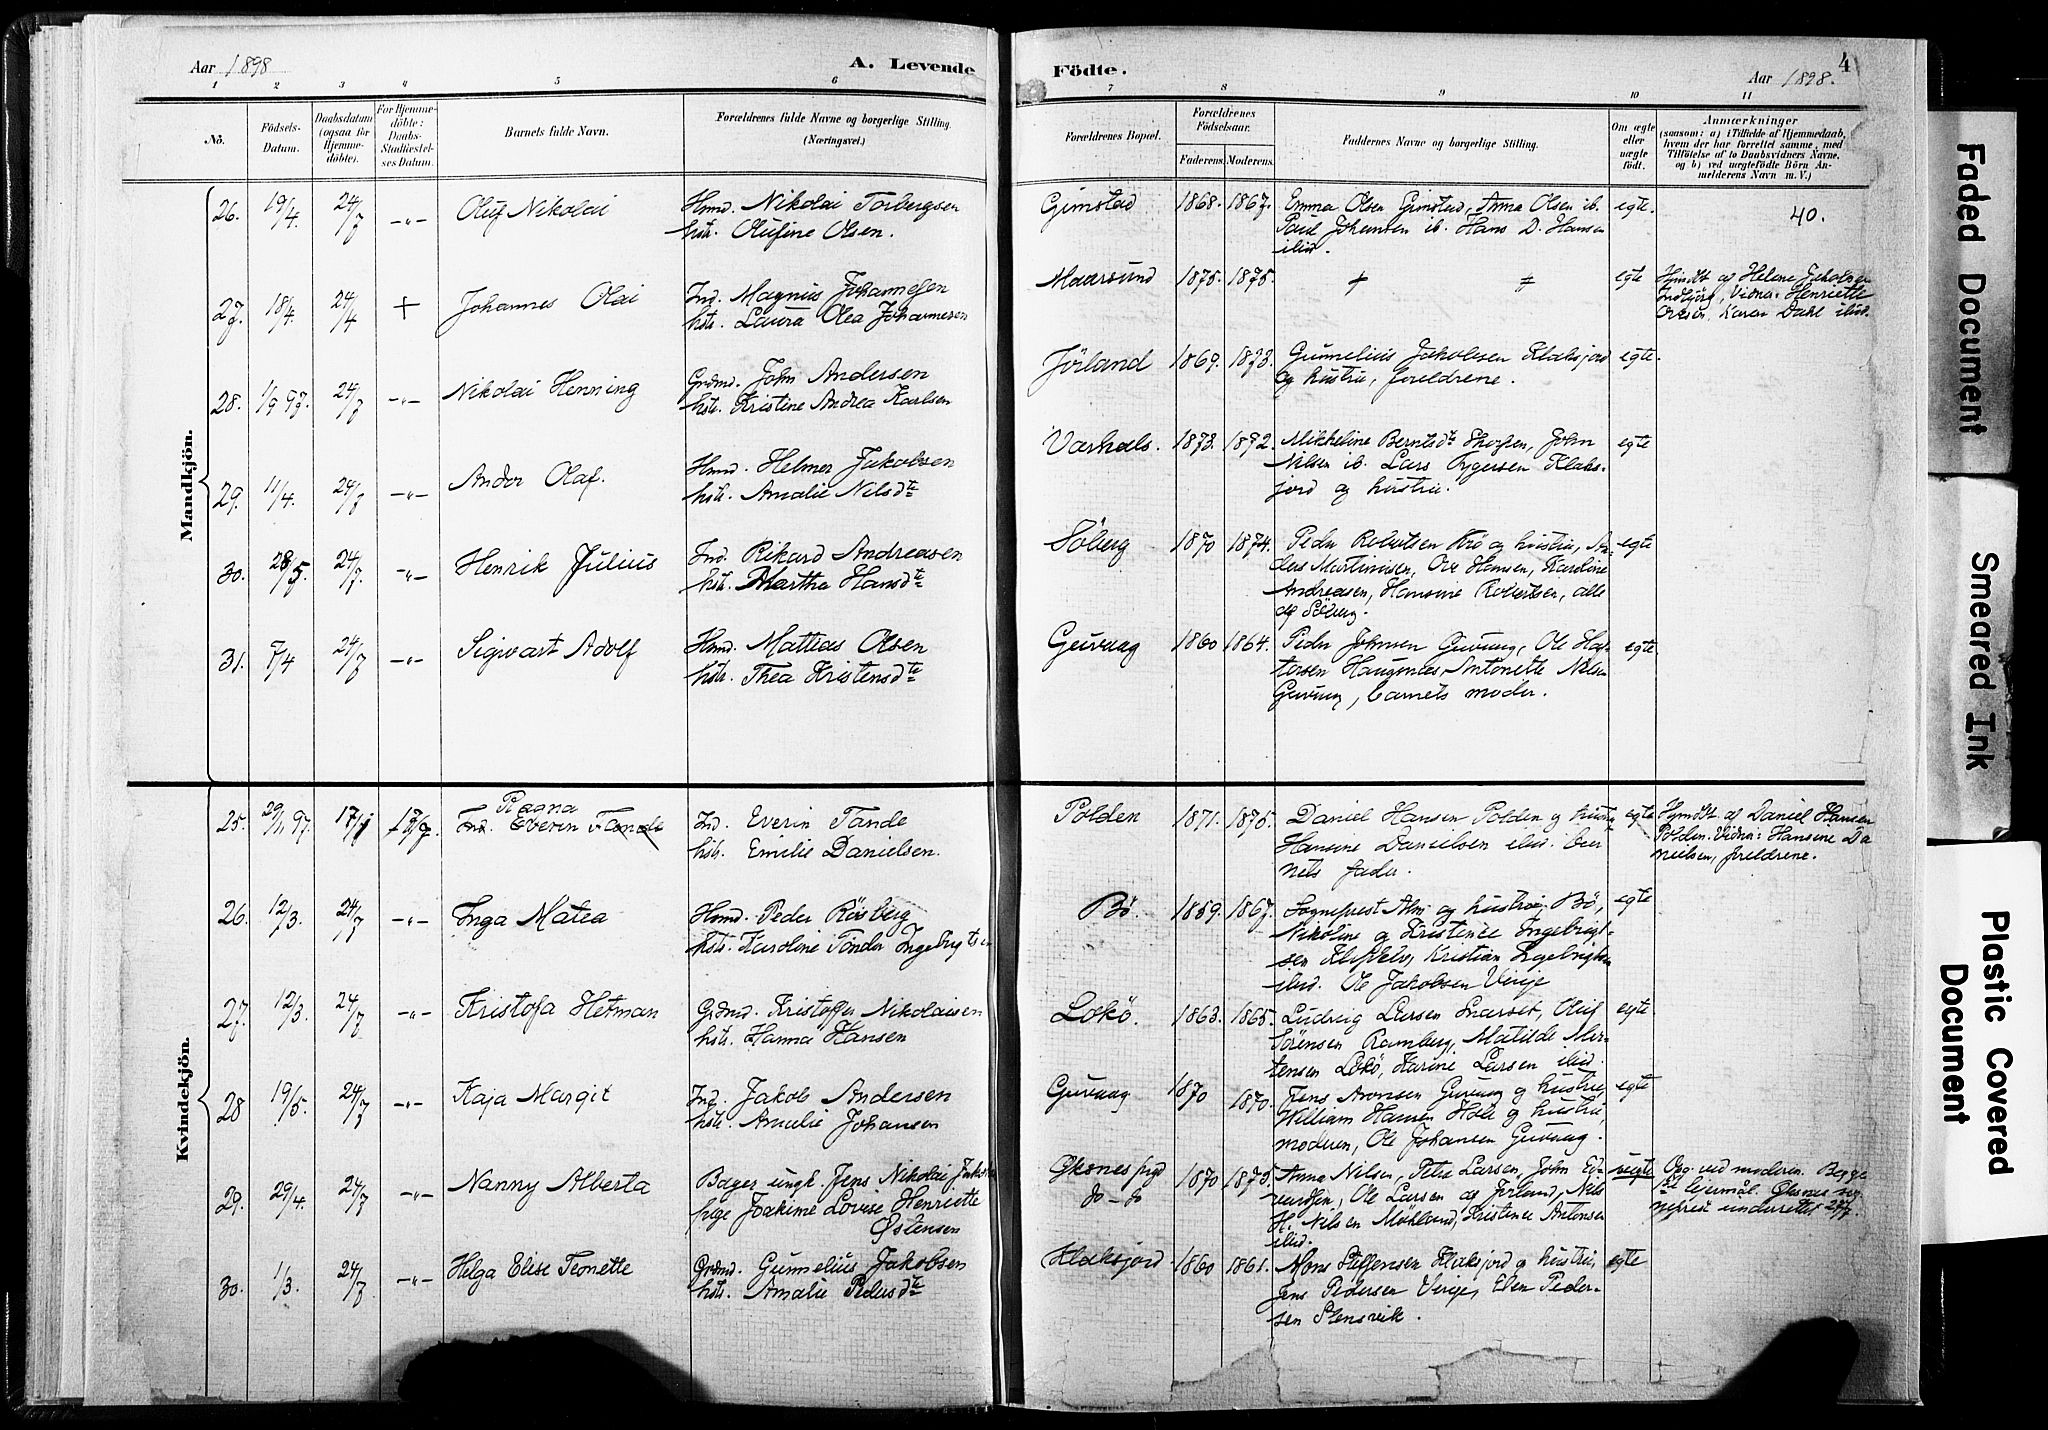 Aar 1898
A. Levende
Födte.
4
Aar 1898.
1 2 3 4 5 6 7 8 9 10 11
No.
Födsels-
Datum.
Daabsdatum
(ogsaa for
Hjemme-
döbte).
For Hjemme-
döbte:
Daabs-
Stadfæstel-
ses Datum.
Barnets fulde Navn.
Forældrenes fulde Navne og borgerlige Stilling.
(Næringsvei.)
Forældrenes Bopæl.
Forældrenes
Födselsaar.
Faderens. Moderens.
Faddernes Navne og borgerlige Stilling.
Om ægte
eller
uægte
födt.
Anmærkninger
(saasom: a) i Tilfælde af Hjemmedaab,
hvem der har forrettet samme, med
Tilföielse af to Daabsvidners Navne,
og b) ved uægtefödte Börn An-
melderens Navn m. V.)
Mandkjön.
26. 19/4. 24/7 -"- Oluf Nikolai
Hmd. Nikolai Torbergsen
hstr. Olufine Olsen.
Grimstad 1868. 1867.
Emma Olsen Grimstad, Anna Olsen ib.
Paul Johansen ib. Hans D. Hansen
ibid.
egte.
40.
27. 18/4. 24/4 + Johannes Olai
Ind. Magnus Johannesen
hstr. Laura Olea Johannesen
Maarsund 1875. 1875.
egte
Hjmdt af Helene Jakobsen
Vidner: Henriette
Olsen, Karen Dahl ibid.
28. 1/9 97. 24/7 -"- Nikolai Henning
Grdmd. John Andersen
hstr. Kristine Andrea Karlsen
Jörland 1869. 1873.
Gunnelius Jakobsen Klaksjord
og hustru, foreldrene.
egte.
29. 11/4. 24/7 -"- Andor Olaf.
Hmd. Helmer Jakobsen
hstr. Amalie Nilsdtr
Varhals. 1873. 1872.
Mikkeline Berntsdtr John
Nilsen ib. Lars Klaks-
jord og hustru.
egte
30. 28/5. 24/7. -"- Henrik Julius
Ind. Rikard Andreasen
hstr. Martha Hansdtr
Söberg 1870 1874.
Peder Robertsen og hustru, An-
ders Martinusen, Ole Hansen, Karoline
Andreasen, Hansine Robertsen, alle
af Söberg.
egte
31. 7/4 24/7 -"- Sigvart Adolf
Hmd. Mattias Olsen
hstr. Thea Kristensdtr
Guvaag 1860 1864.
Peder Johnsen Guvaag, Ole
Haugsnes, Antonette Nilsen
Guvaag, barnets moder.
egte
Kvindekjön.
25. 29/11 97. 17/1 17/7. Ragna
Ind. Everin Tande
Ind. Everin Tande
hstr. Emelie Danielsen.
Polden 1871. 1875.
Daniel Hansen Polden og hustru
Hansine Danielsen ibid. bar-
nets fader.
egte
Hjmdt af Daniel Hansen
Polden. Vidner: Hansene Da
nielsen, foreldrene.
26. 12/3. 24/7 -"- Inga Matea
Hmd. Peder Rörsberg
hstr. Karoline Tander Ingebrigtsen
Bö. 1859. 1867.
Sogneprest Alm og hustru Bö,
Nikoline og Kristence Ingebrigt-
sen Kristian Ingebrigtsen
ibid. Ole Jakobsen Veije
egte
27. 12/3. 24/7 -"- Kristofa Hetman
Grdmd. Kristoffer Nikolaisen
hstr. Hanna Hansen
Lokö. 1863. 1865.
Ludvig Larsen Oluf
Sörensen Ramberg, Matilde Mor-
tensen Lokö, Karine Larsen ibid.
egte
28 19/5. 24/7 -"- Kaja Margit
Ind. Jakob Andersen
hstr. Amalie Johansen
Guvaag 1870 1870.
Jens Aronsen Guvaag og hustru,
William Hansen Hole og hustru,
moderen, Ole Johansen Guvaag.
egte
29. 29/4. 24/7 -"- Nanny Alberta
Bager ungk. Jens Nikolai
pige Joakime Lovise Henriette
Östensen
Öksnes prgd 1870 1873.
do - do
Anna Nilsen, Petra Larsen, John Ed-
vardsen, Ole Larsen af Jorland, Nils
H. Nilsen Möhland, Kristence Antonsen
ibid.
uegte
Opg. ved moderen. Begge
1st leiermål. Öksnes sog-
neprest underrettet 24/7.
30. 1/3. 24/7 -"- Helga Elise Teonette
Grdmd. Gunnelius Jakobsen
hstr. Amalie Pedersdtr
Klaksjord 1860 1861.
Mons Steffensen Klaksjord og hustru,
Jens Pedersen Veije, Eben Peder-
sen Stensvik.
egte
Faded Document
Smeared Ink
Plastic Covered
Document